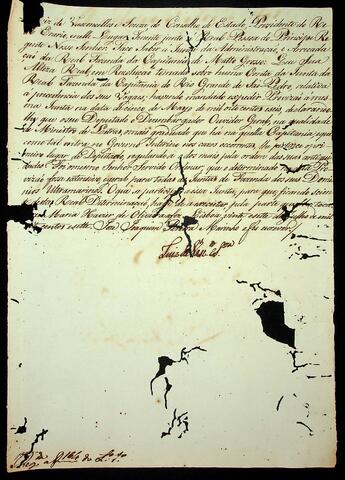 iz de Vasconcellos e Souza do Conselho de Estado, Presidente do Re
Erario, nelle Lugar Tenente junto á Real Pessoa do Principe Re
gente Nosso Senhor Faço Saber á Junta da Administração, e Arrecada
ção da Real Fazenda da Capitania de Matto Grosso: Que Sua
Alteza Real em Resolução tomada sobre huma Conta da Junta da
Real Fazenda da Capitania do Rio Grande de São Pedro, relativa
á precedencia dos seus Vogaes, havendo mandado expedir Provizão á mes
ma Junta na data de nove de Mayo de mil oito centos seis, declarando
lhe que o seu Deputado o Dezembargador Ouvidor Geral, na qualidade
de Ministro de Letras, mais graduado que há na quella Capitania, e que
como tal entra no Governo Interino nos cazos occorrentes, lhe pertence o pri
meiro lugar de Deputado, regulando os dos mais pela ordem das suas antigui
dades: Foi o mesmo Senhor Servido Ordenar, que a determinação
fosse extensiva e geral para todas as Juntas de Fazenda dos seus Domi
nios Ultramarinos. O que se participa a essa Junta, para que ficando scien
desta Real Determinação, haja de a executar pela parte que lhe toca.
Maria Xavier de Oliveira a fez Lisboa vinte e sete de Julho de mil
centos e sete. Joaquim Marinho a fez escrever
Luiz de Vas.^os e Sz.^a
Reg.^da a f 164 do L.^o 1.^o